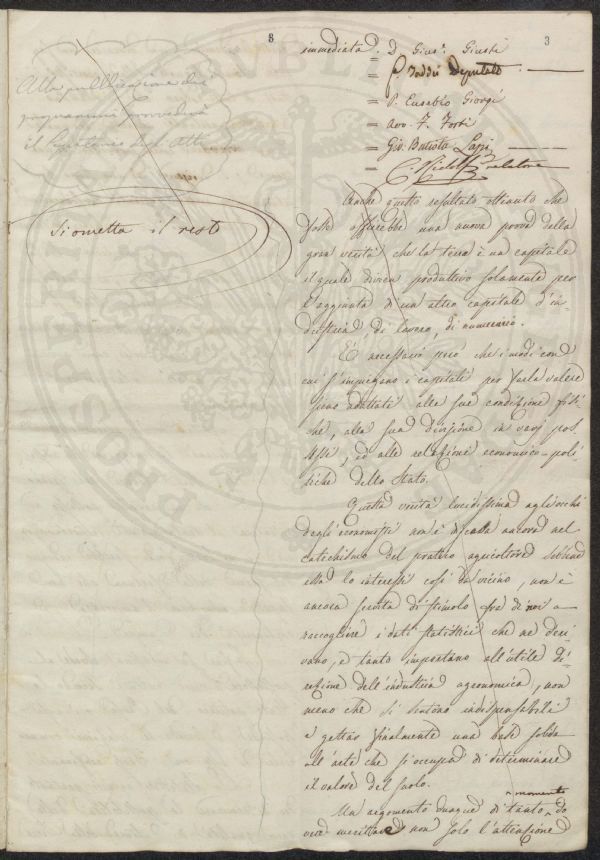 8
3
Alla pubblicazione dei
programmi provvederà
il Segretario degli Atti
Si ometta il resto
immediata. D. Gius.e Giusti
= P. Taddei Deputato
= P. Eusebio Giorgi
= Avv. F. Forti
= Gio. Batista Lapi
= C. Relatore
Anche questo resultato ottenuto che
fosse offrirebbe una nuova prova della
gran verità che la terra è un capitale
il quale divien produttivo solamente per
l'aggiunta di un altro capitale d'in-
dustria, di lavoro, di numerario.
E' necessario però che i modi con
cui s'impiegano i capitali per farla valere
sieno adattati alle sue condizioni fisi-
che, alla sua divisione in varj pos-
sessi, ed alle relazioni economico-poli-
tiche dello Stato.
Questa verità lucidissima agli occhi
degli economisti non è discesa ancora nel
catechismo del pratico agricoltore sebbene
essa lo interessi così da vicino, non è
ancora servita di stimolo fra di noi a
raccogliere i dati statistici che ne deri-
vano, e tanto importano all'utile di-
rezione dell'industria agronomica, non
meno che si sentono indispensabili
a gettar finalmente una base solida
all'arte che si occupa di determinare
il valore del suolo.
Un argomento dunque di tanto momento do
veva meritare non solo l'attenzione